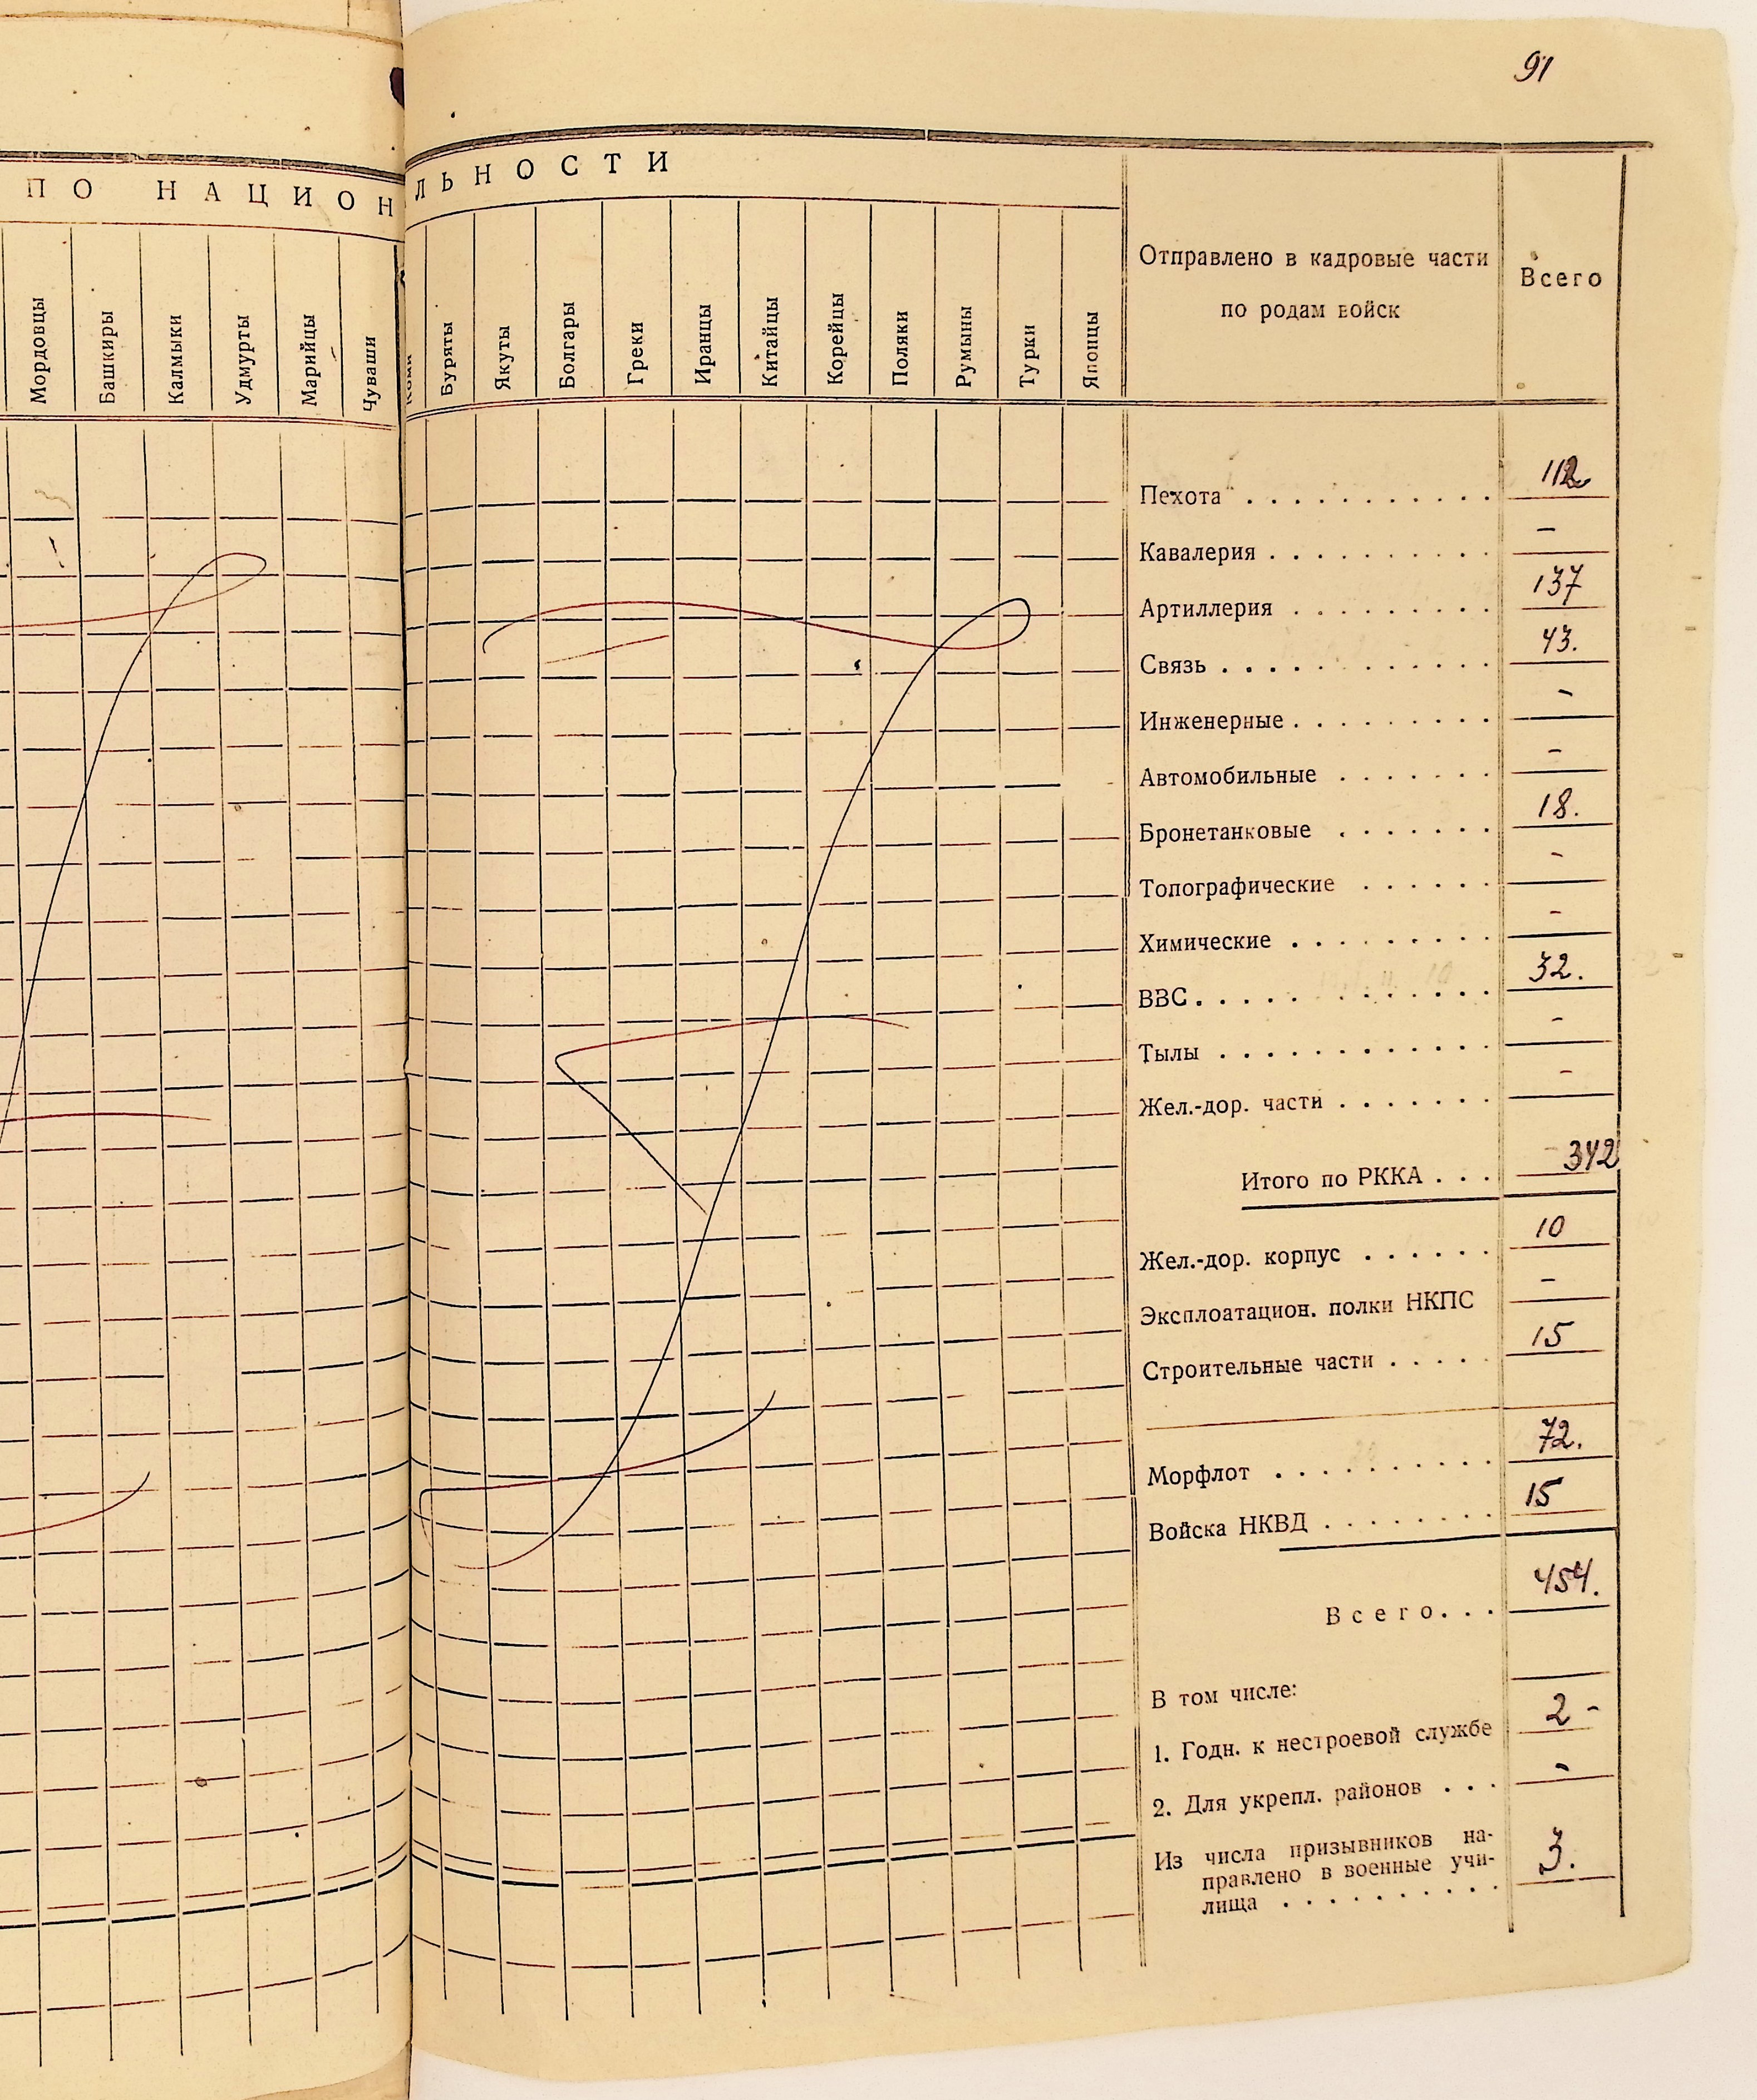 91
ПО НАЦИОН
ЛЬНОСТИ
Мордовцы
Башкиры
Калмыки
Удмурты
Марийцы
Чуваши
Коми
Буряты
Якуты
Болгары
Греки
Иранцы
Китайцы
Корейцы
Поляки
Румыны
Турки
Японцы
Отправлено в кадровые части
по родам войск
Всего
Пехота . . . . . . . . . . . 112
Кавалерия . . . . . . . . . . –
Артиллерия . . . . . . . . . 137
Связь . . . . . . . . . . . . 43.
Инженерные . . . . . . . . . –
Автомобильные . . . . . . . –
Бронетанковые . . . . . . . 18.
Топографические . . . . . . –
Химические . . . . . . . . . –
ВВС . . . . . . . . . . . . . 32.
Тылы . . . . . . . . . . . . –
Жел.-дор. части . . . . . . . –
Итого по РККА . . . 342
Жел.-дор. корпус . . . . . . 10
Эксплоатацион. полки НКПС –
Строительные части . . . . . 15
Морфлот . . . . . . . . . . 72.
Войска НКВД . . . . . . . . 15
Всего. . . 454.
В том числе:
1. Годн. к нестроевой службе 2 –
2. Для укрепл. районов . . . –
Из числа призывников на-
правлено в военные учи-
лища . . . . . . . . . . 3.